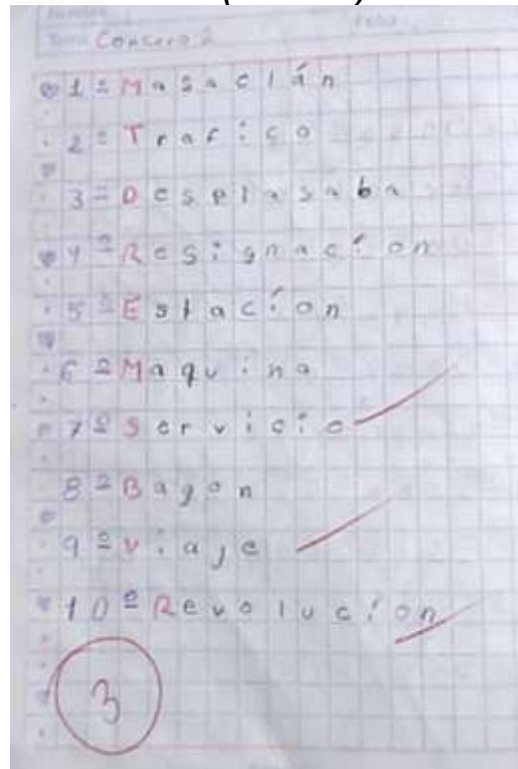 Nombre Fecha
Tema Concurso 2
1º Masaclán
2º Trafico
3º Desplasaba
4º Resignación
5º Estacíon
6º Maquina
7º Servicio
8º Bagon
9º Viaje
10º Revolucíon
3